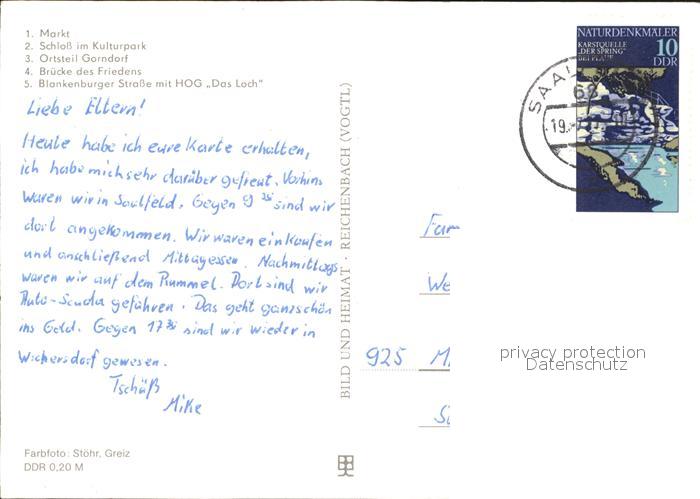 1. Markt
2. Schloß im Kulturpark
3. Ortsteil Gorndorf
4. Brücke des Friedens
5. Blankenburger Straße mit HOG „Das Loch“
Liebe Eltern!
Heute habe ich eure Karte erhalten,
ich habe mich sehr darüber gefreut. Vorhins
waren wir in Saalfeld. Gegen 9 sind wir
dort angekommen. Wir waren einkaufen
und anschließend Mittagessen. Nachmittags
waren wir auf dem Rummel. Dort sind wir
Auto-Scuda gefahren. Das geht ganz schön
ins Geld. Gegen 17 sind wir wieder in
Wickersdorf gewesen.
Tschüß
Mike
Farbfoto: Stöhr, Greiz
DDR 0,20 M
BILD UND HEIMAT · REICHENBACH (VOGTL)
NATURDENKMÄLER
KARSTQUELLE
„DER SPRING“
BEI PLAUE
10
DDR
SAAL
68
19.
Fam
We
925 M
privacy protection
Datenschutz